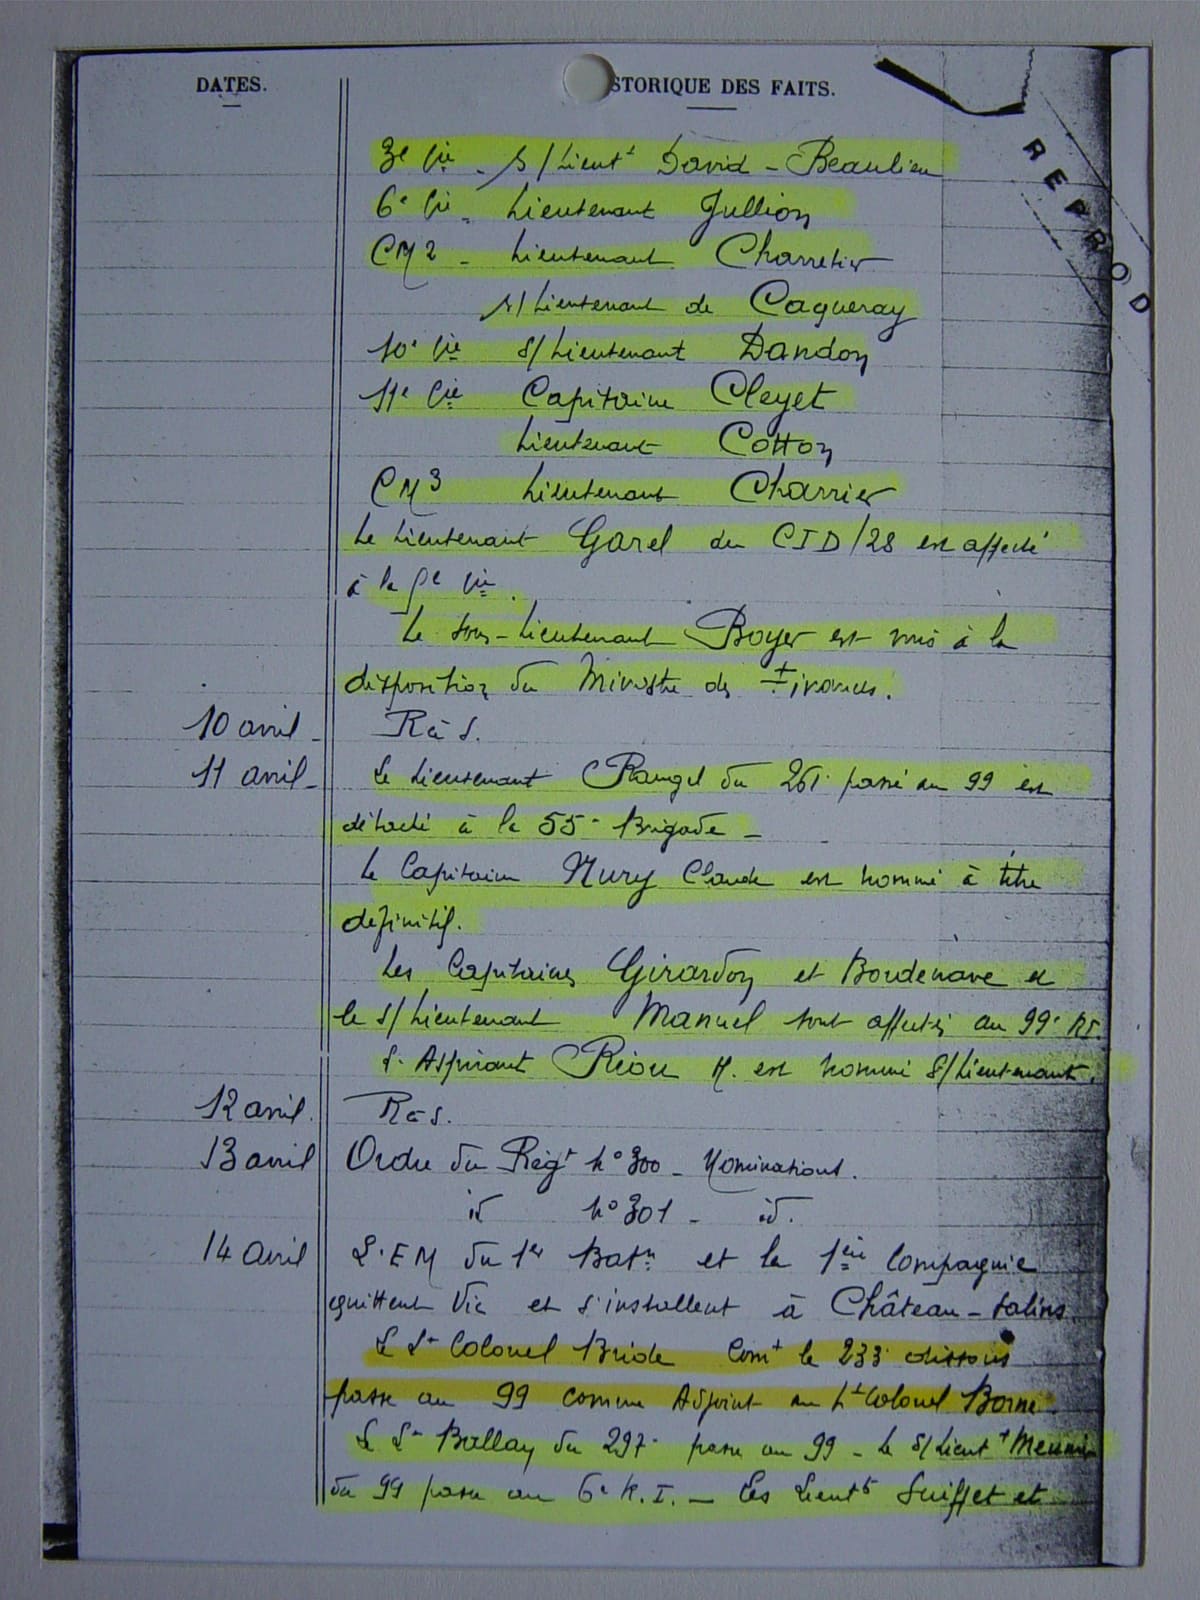 DATES.
STORIQUE DES FAITS.
REPROD
3e Cie - S/Lieutt David-Beaulieu
6e Cie - Lieutenant Jullion
CM2 - Lieutenant Charretier
S/Lieutenant de Caqueray
10e Cie S/Lieutenant Dandon
11e Cie Capitaine Cleyet
Lieutenant Cotton
CM3 Lieutenant Charrier
Le Lieutenant Garel du CID/28 est affecté
à la Cie.
Le Sous-Lieutenant Boyer est mis à la
disposition du Ministre des Finances.
10 avril - RàS.
11 avril - Le Lieutenant Raugel du 261e passé au 99 est
détaché à la 55e Brigade -
Le Capitaine Nury Claude est nommé à titre
définitif.
Les Capitaines Girardon et Bordenave et
le S/Lieutenant Manuel sont affectés au 99e RI.
L'Aspirant Riou M. est nommé S/Lieutenant.
12 avril. RàS.
13 avril Ordre du Régt No 300 - Nominations.
id No 301 - id.
14 avril L'EM du 1er Batn et la 1ère Compagnie
quittent Vic et s'installent à Château-Salins.
Le Lt Colonel Bride Comt le 233e dissous
passe au 99 comme Adjoint au Lt Colonel Borne.
Le Lt Ballay du 297e passe au 99 - Le S/Lieutt Meunier
du 99 passe au 6e R.I. - Les Lieuts Suiffet et